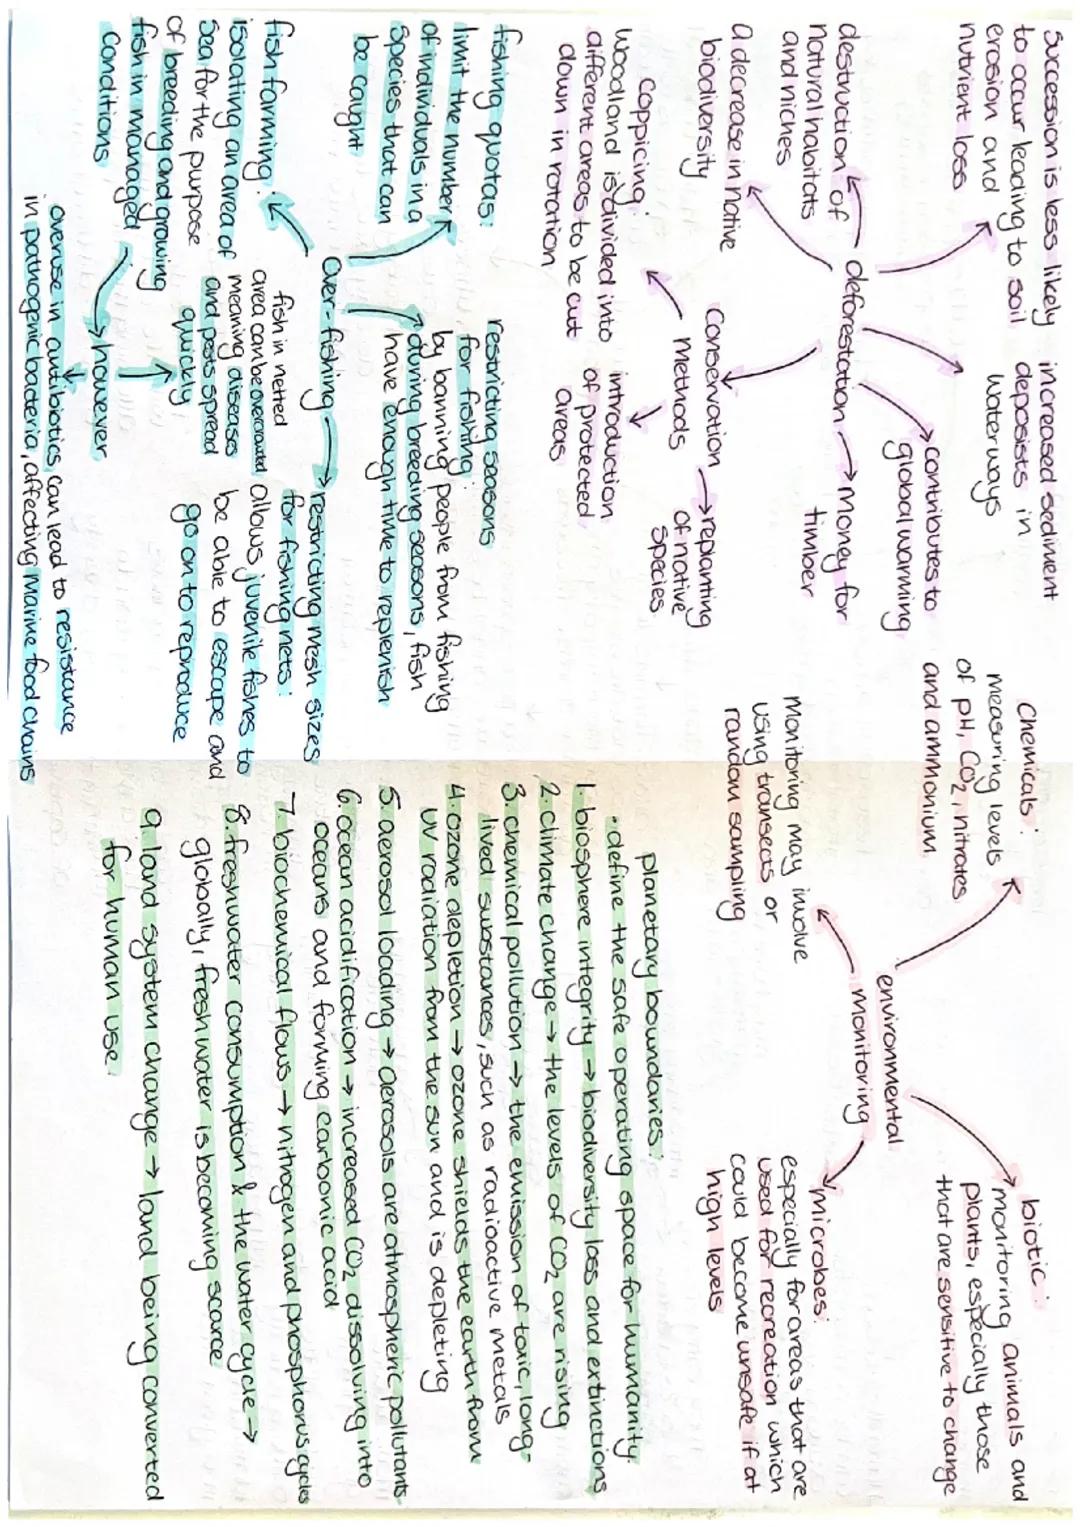 succession is less likely
to occur leading to soil
erosion and
nutrient loss
increased sediment
deposists in
waterways
destruction of
natural habitats
and niches
deforestation
contributes to
global warming
money for
timber
a decrease in native
biodiversity
conservation
methods
replanting
of native
species
coppicing:
woodland is divided into
different areas to be cut
down in rotation
introduction
of protected
areas
fishing quotas:
limit the number
of individuals in a
species that can
be caught
restricting seasons
for fishing:
by banning people from fishing
during breeding seasons, fish
have enough time to replenish
Over-fishing
restricting mesh sizes
for fishing nets:
allows juvenile fishes to
be able to escape and
go on to reproduce
fish farming:
isolating an area of
sea for the purpose
of breeding and growing
fish in managed
conditions
fish in netted
area can be overcrowded
meaning diseases
and pests spread
quickly
however
overuse in antibiotics, can lead to resistance
in pathogenic bacteria, affecting marine food chains
Chemicals:
measuring levels
of pH, CO2, nitrates
and ammonium
environmental
monitoring
biotic:
monitoring animals and
plants, especially those
that are sensitive to change
Monitoring may involve
using transects or
random sampling
microbes:
especially for areas that are
used for recreation which
could become unsafe if at
high levels
planetary boundaries:
• define the safe operating space for humanity.
1. biosphere integrity → biodiversity loss and extinctions
2. climate change → the levels of CO2 are rising
3. chemical pollution → the emission of toxic, long-
lived substances, such as radioactive metals
4. ozone depletion → ozone shields the earth from
UV radiation from the sun and is depleting
5. aerosol loading → aerosols are atmospheric pollutants
6. ocean acidification → increased CO2 dissolving into
oceans and forming carbonic acid
7. biochemical flows → nitrogen and phosphorus cycles
8. freshwater consumption & the water cycle →
globally, fresh water is becoming scarce
9. land system change → land being converted
for human use.